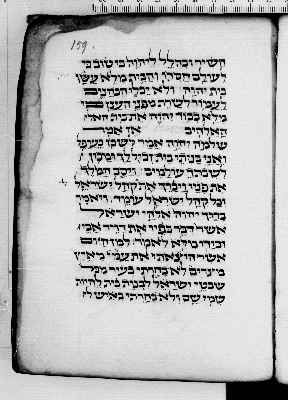 159
תשיר ובהלל ליהוה כי טוב כי
לעולם חסדו והבית מלא ענן
בית יהוה ולא יכלו הכהנים
לעמוד לשרת מפני הענן כי
מלא כבוד יהוה את בית
האלהים אז אמר
שלמה יהוה אמר לשכן בערפל
ואני בניתי בית זבל לך ומכון
לשבתך עולמים ויסב המלך
את פניו ויברך את קהל ישראל
וכל קהל ישראל עומד ויאמר
ברוך יהוה אלהי ישראל
אשר דבר בפיו את דויד אבי
ובידיו מלא לאמר מן היום
אשר הוצאתי את עמי מארץ
מצרים לא בחרתי בעיר מכל
שבטי ישראל לבנות בית להיות
שמי שם ולא בחרתי באיש